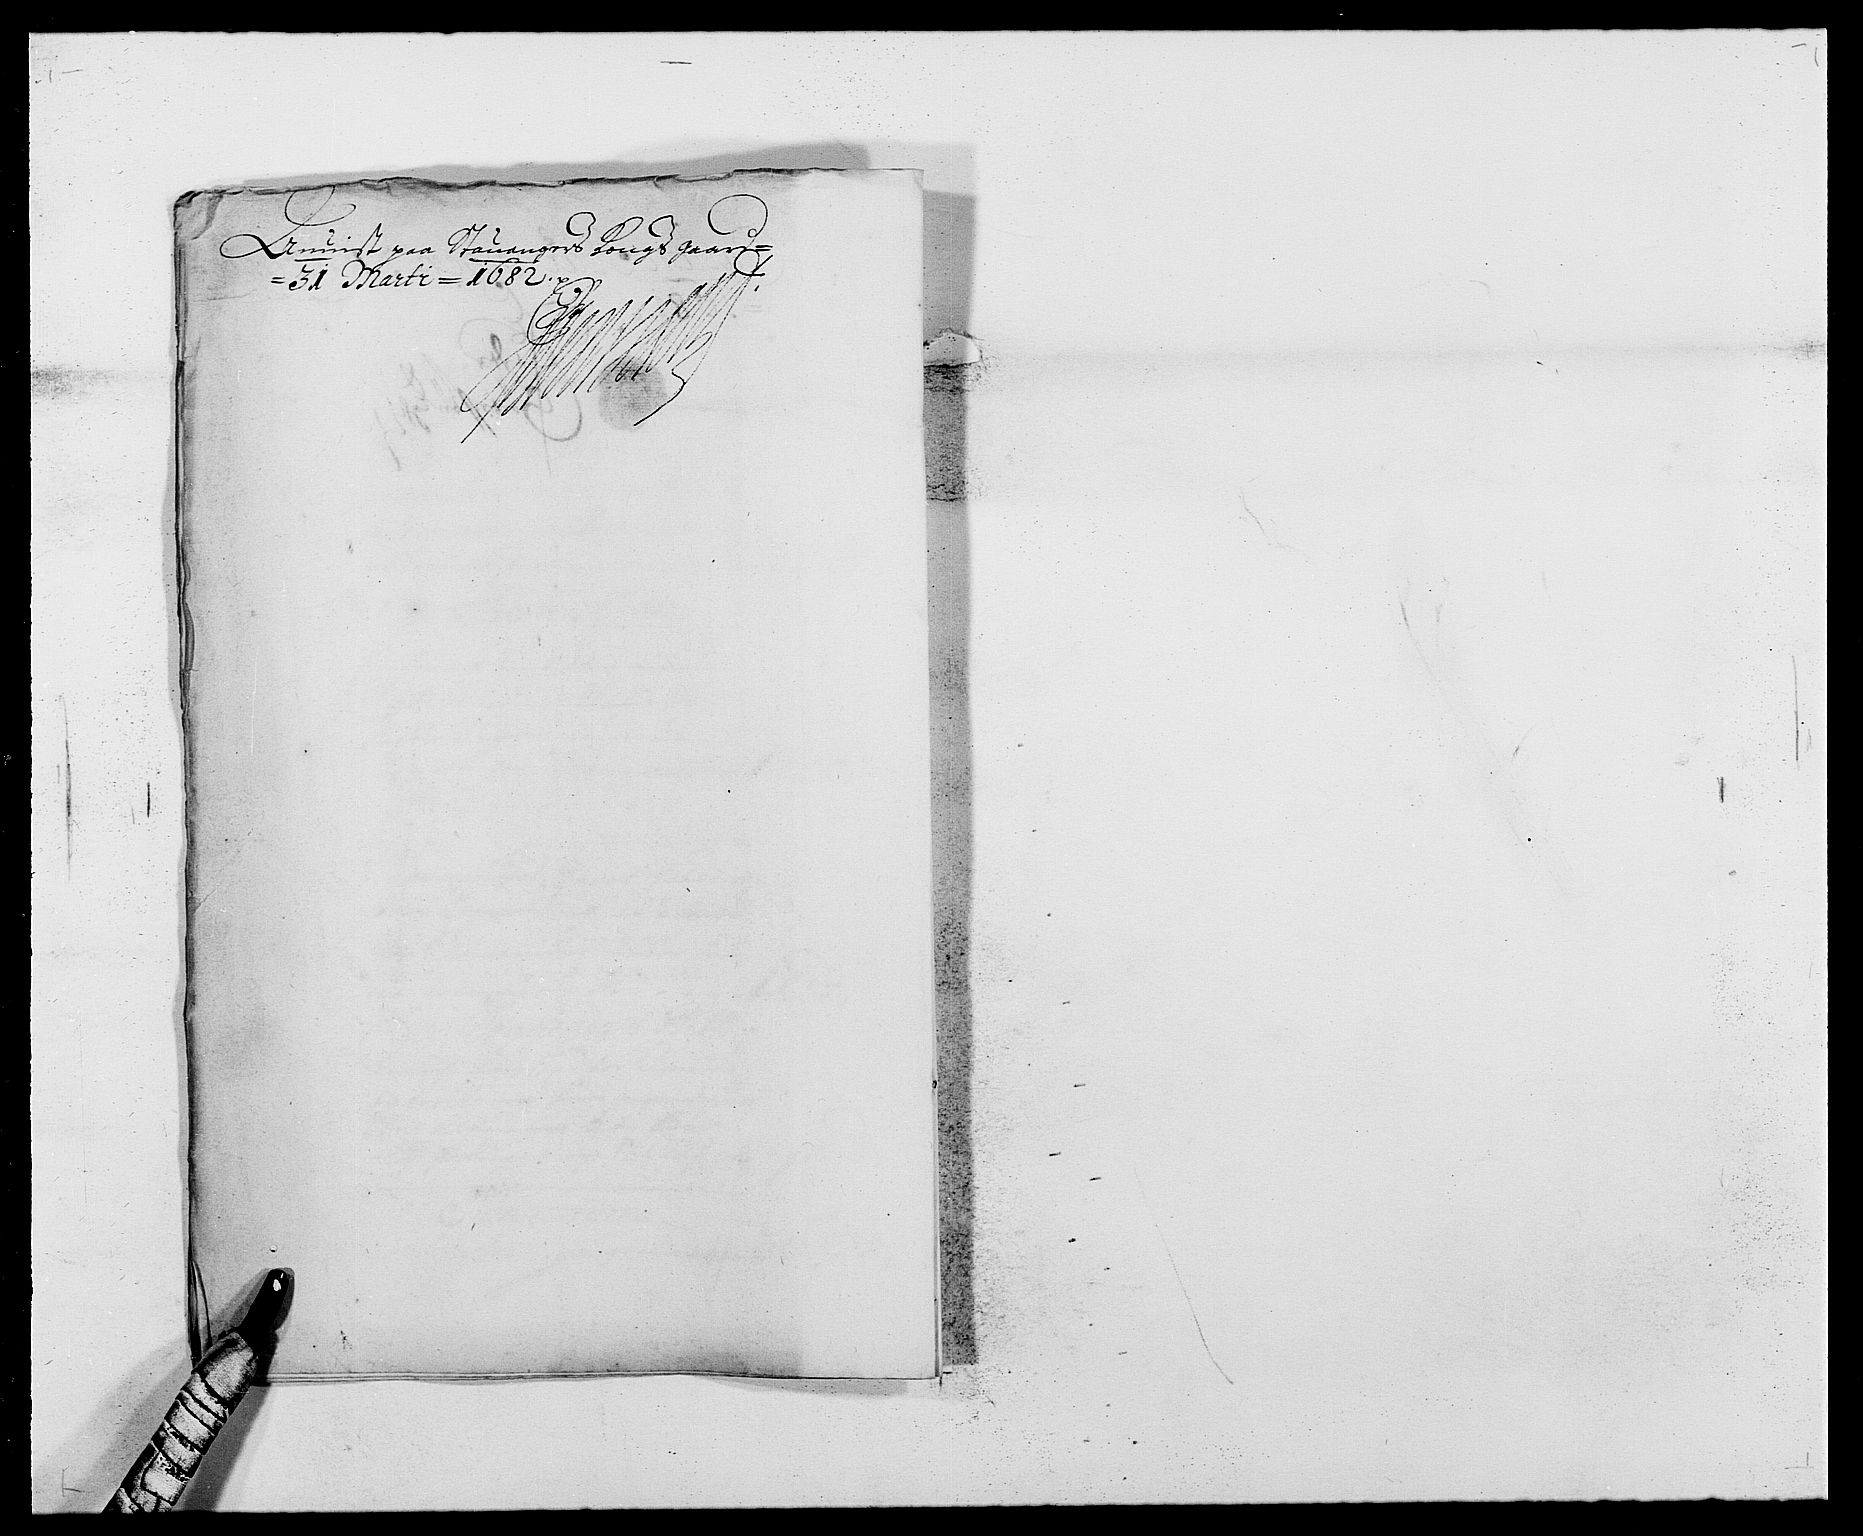 Anvist paa Stavangers Kongsgaard
=31 Marti = 1682.